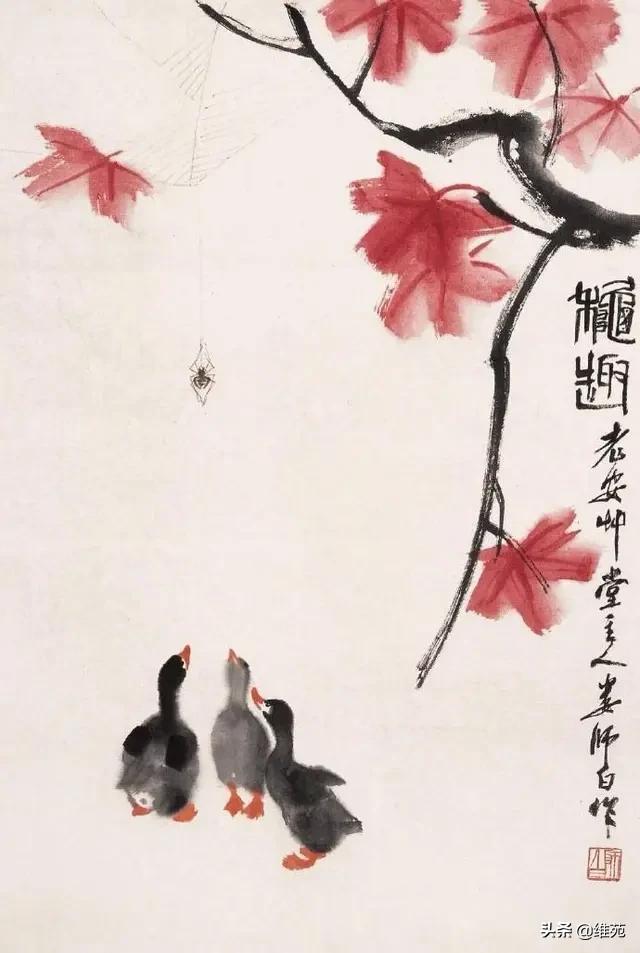 龝趣
老安艸堂主人娄师白作
头条 @维苑